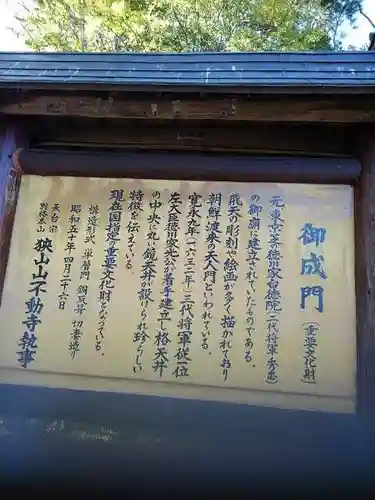 御成門(重要文化財)
元、東京、芝徳川家台徳院(二代将軍秀忠)
の御廟に建立されていたものである。
飛天の彫刻や絵画が多く描かれており
朝鮮渡来の天人門といわれている。
寛永九年(一六三二年)三代将軍従一位
左大臣徳川家光公が着手建立し格天井
の中央に丸い鏡天井が設けられ珍らしい
特徴を伝えている。
現在国指定の重要文化財となっている。
構造形式 単層門 銅瓦葺 切妻造り
昭和五十年四月二十六日
天台宗
別格本山 狭山山不動寺執事